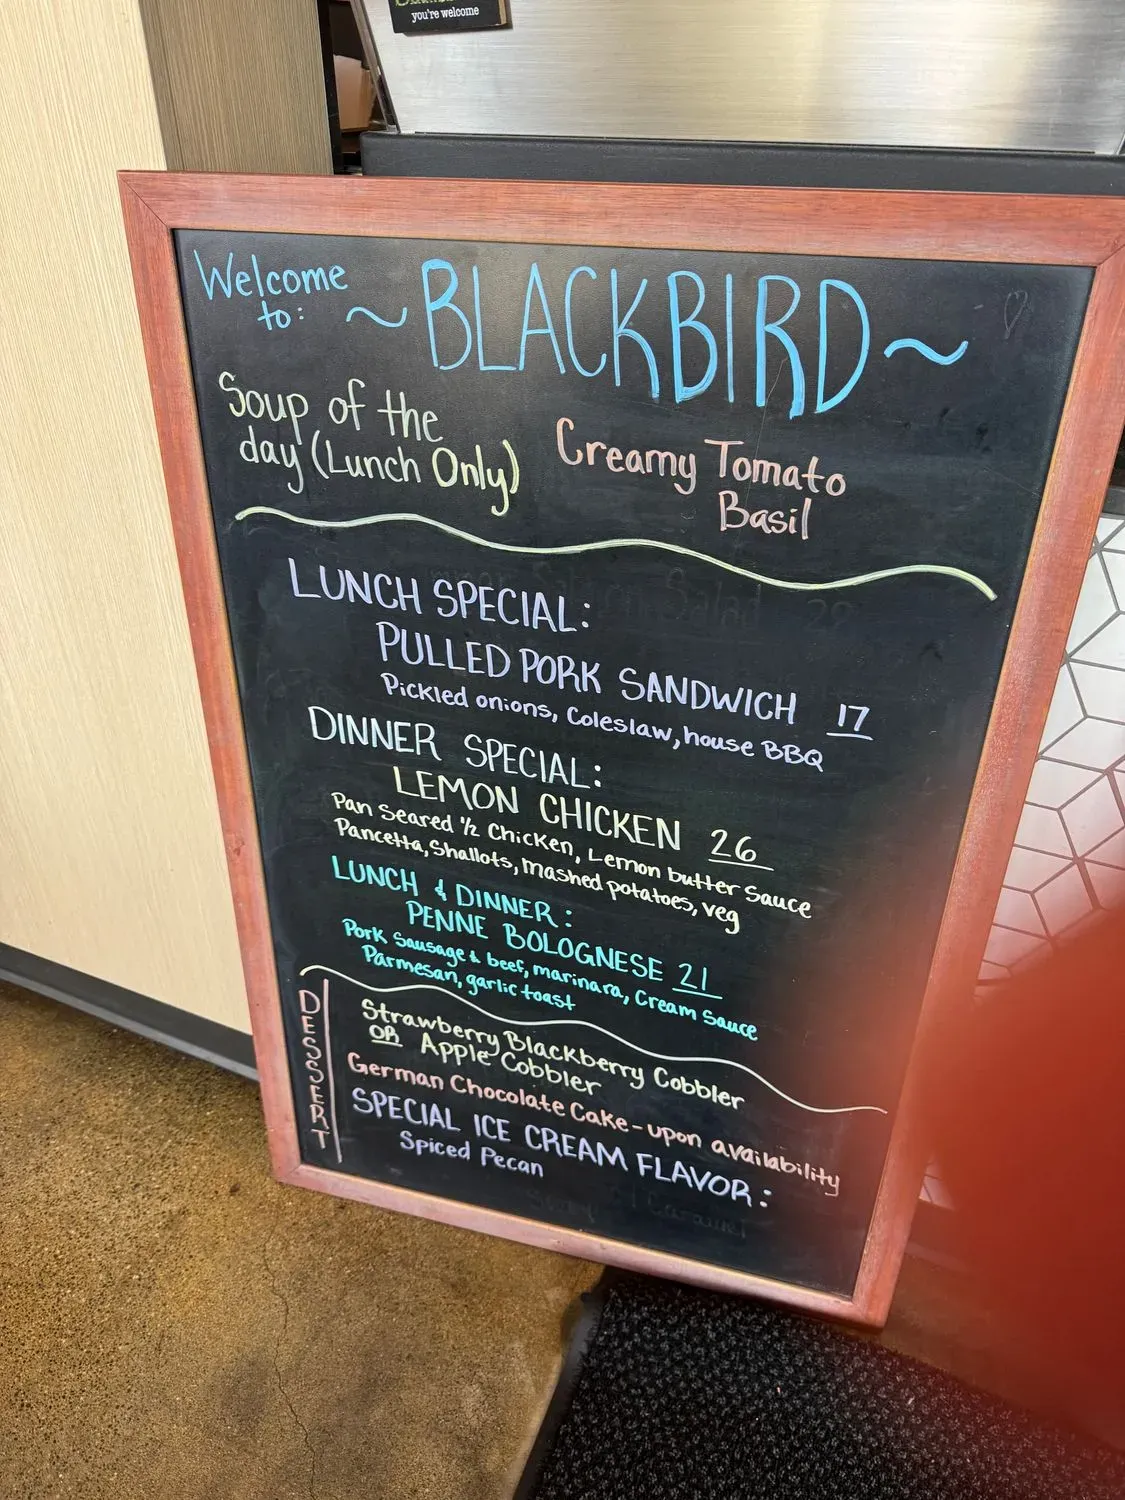 you're welcome
Welcome
to: ~BLACKBIRD~
Soup of the
day (Lunch Only)
Creamy Tomato
Basil
LUNCH SPECIAL:
PULLED PORK SANDWICH 17
Pickled onions, Coleslaw, house BBQ
DINNER SPECIAL:
LEMON CHICKEN 26
Pan Seared ½ Chicken, Lemon butter Sauce
Pancetta, Shallots, mashed potatoes, veg
LUNCH & DINNER:
PENNE BOLOGNESE 21
Pork Sausage & beef, marinara, Cream Sauce
Parmesan, garlic toast
DESSERT
Strawberry Blackberry Cobbler
OR Apple Cobbler
German Chocolate Cake - upon availability
SPECIAL ICE CREAM FLAVOR:
Spiced Pecan